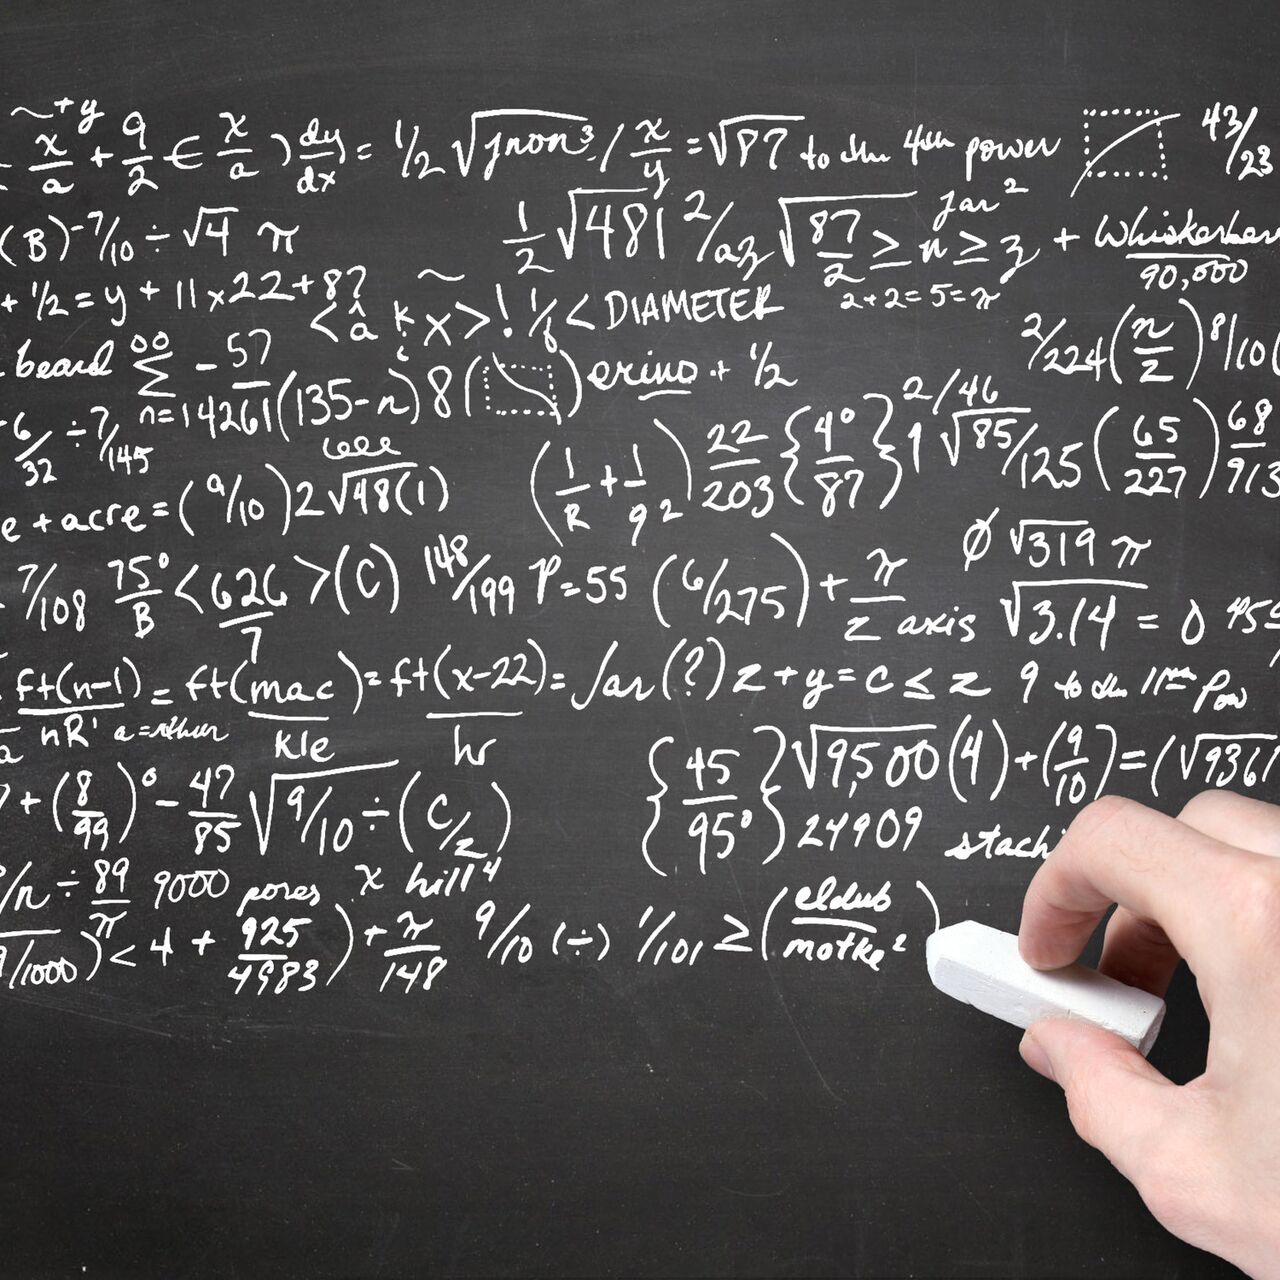 ~+y
x/a + 9/2 € x/a ) dy/dx ) = 1/2 √jnon³ / x/y = √87 to the 4th power 43/23
(B)^-7/10 ÷ √4 π 1/2 √481 2/az √87/2 ≥ n ≥ z jar² + 90,000
+ 1/2 = y + 11x22+8? 2+2=5=π
<â k x>! 1/8 < DIAMETER
beard ∑ -57 2/224 (n/z) 8/10 (
n=14261(135-n)8( ) erino + 1/2
6/32 ÷ 7/145 (1/R + 1/9 2) 22/203 {4°/87} 1 2/46 √85/125 (65/227) 68/913
e + acre = (9/10)2√48(1)
7/108 75°/B <626/7>(C) 148/199 P=55 (6/275) + π/z axis Ø √319 π
√3.14 = 0 45
ft(n-1)/nR' = ft(mac/kle) = ft(x-22)/hr = Jar(?) z+y=c≤z 9 to the 11th Pow
a=
+ (8/99)° - 47/85 √9/10 ÷ (C/z) {45/95°} √9,500(4)+(9/10)=(√9361
24909 stach
/n ÷ 89/π 9000 pores x hill⁴
9/1000)< 4 + 925/4983) + π/148 9/10 (÷) 1/101 ≥ (eldub/motke²)